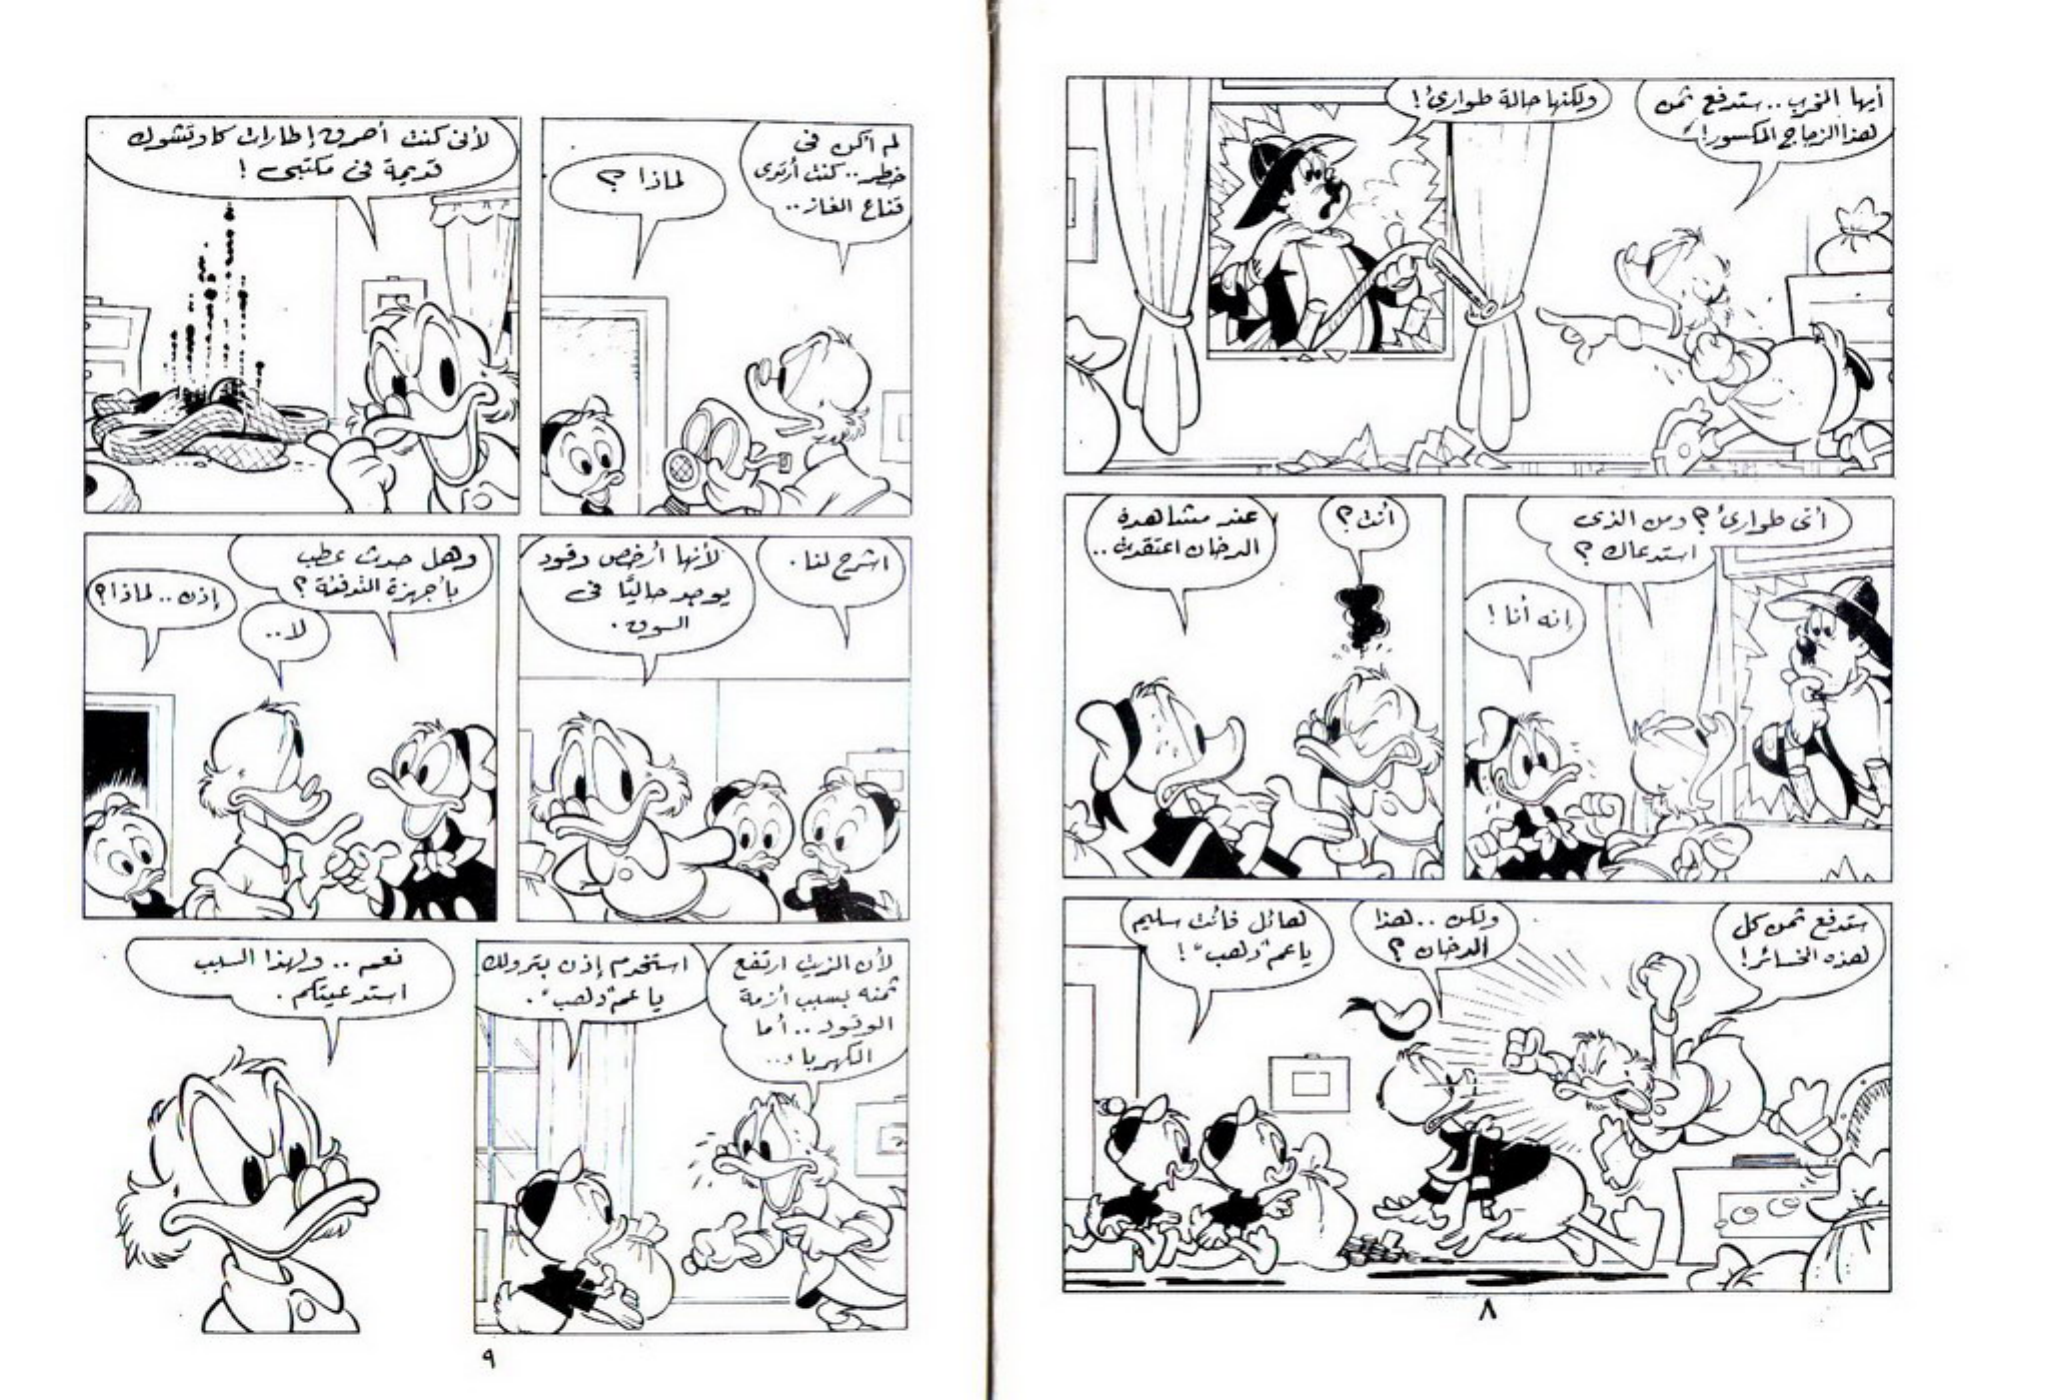 أيها المخرب.. ستدفع ثمن
هذا الزجاج المكسور!
ولكنها حالة طوارئ!
أى طوارئ؟ ومن الذى
استدعاك؟
إنه أنا!
أنت؟
عند مشاهدة
الدخان اعتقدت..
ستدفع ثمن كل
هذه الخسائر!
ولكن.. هذا
الدخان؟
هائل فأنت سليم
ياعم "دهب"!
٨
لم أكن فى
خطر.. كنت أرتدى
قناع الغاز..
لماذا؟
لأنى كنت أحرق إطارات كاوتشوك
قديمة فى مكتبى!
اشرح لنا.
لأنها أرخص وقود
يوجد حاليًا فى
السوق.
وهل حدث عطب
بأجهزة التدفئة؟
لا..
إذن.. لماذا؟
لأن الزيت ارتفع
ثمنه بسبب أزمة
الوقود.. أما
الكهرباء..
استخدم إذن بترولك
ياعم "دهب".
نعم.. ولهذا السبب
استدعيتكم.
٩